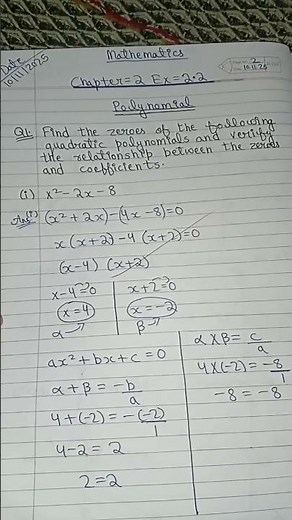 Date
10/11/2025
Mathematics
2
10.11.25
Chapter=2 Ex=2.2
Polynomial
Q1. Find the zeroes of the following
quadratic polynomials and verify
the relationship between the zeroes
and coefficients.
(i) x²-2x-8
Ans(i) (x²+2x)-(4x-8)=0
x(x+2)-4(x+2)=0
(x-4) (x+2)
x-4=0 x+2=0
x=4 x=-2
α β
ax²+bx+c=0
α+β=-b/a
4+(-2)=-(-2)/1
4-2=2
2=2
α×β=c/a
4×(-2)=-8/1
-8=-8